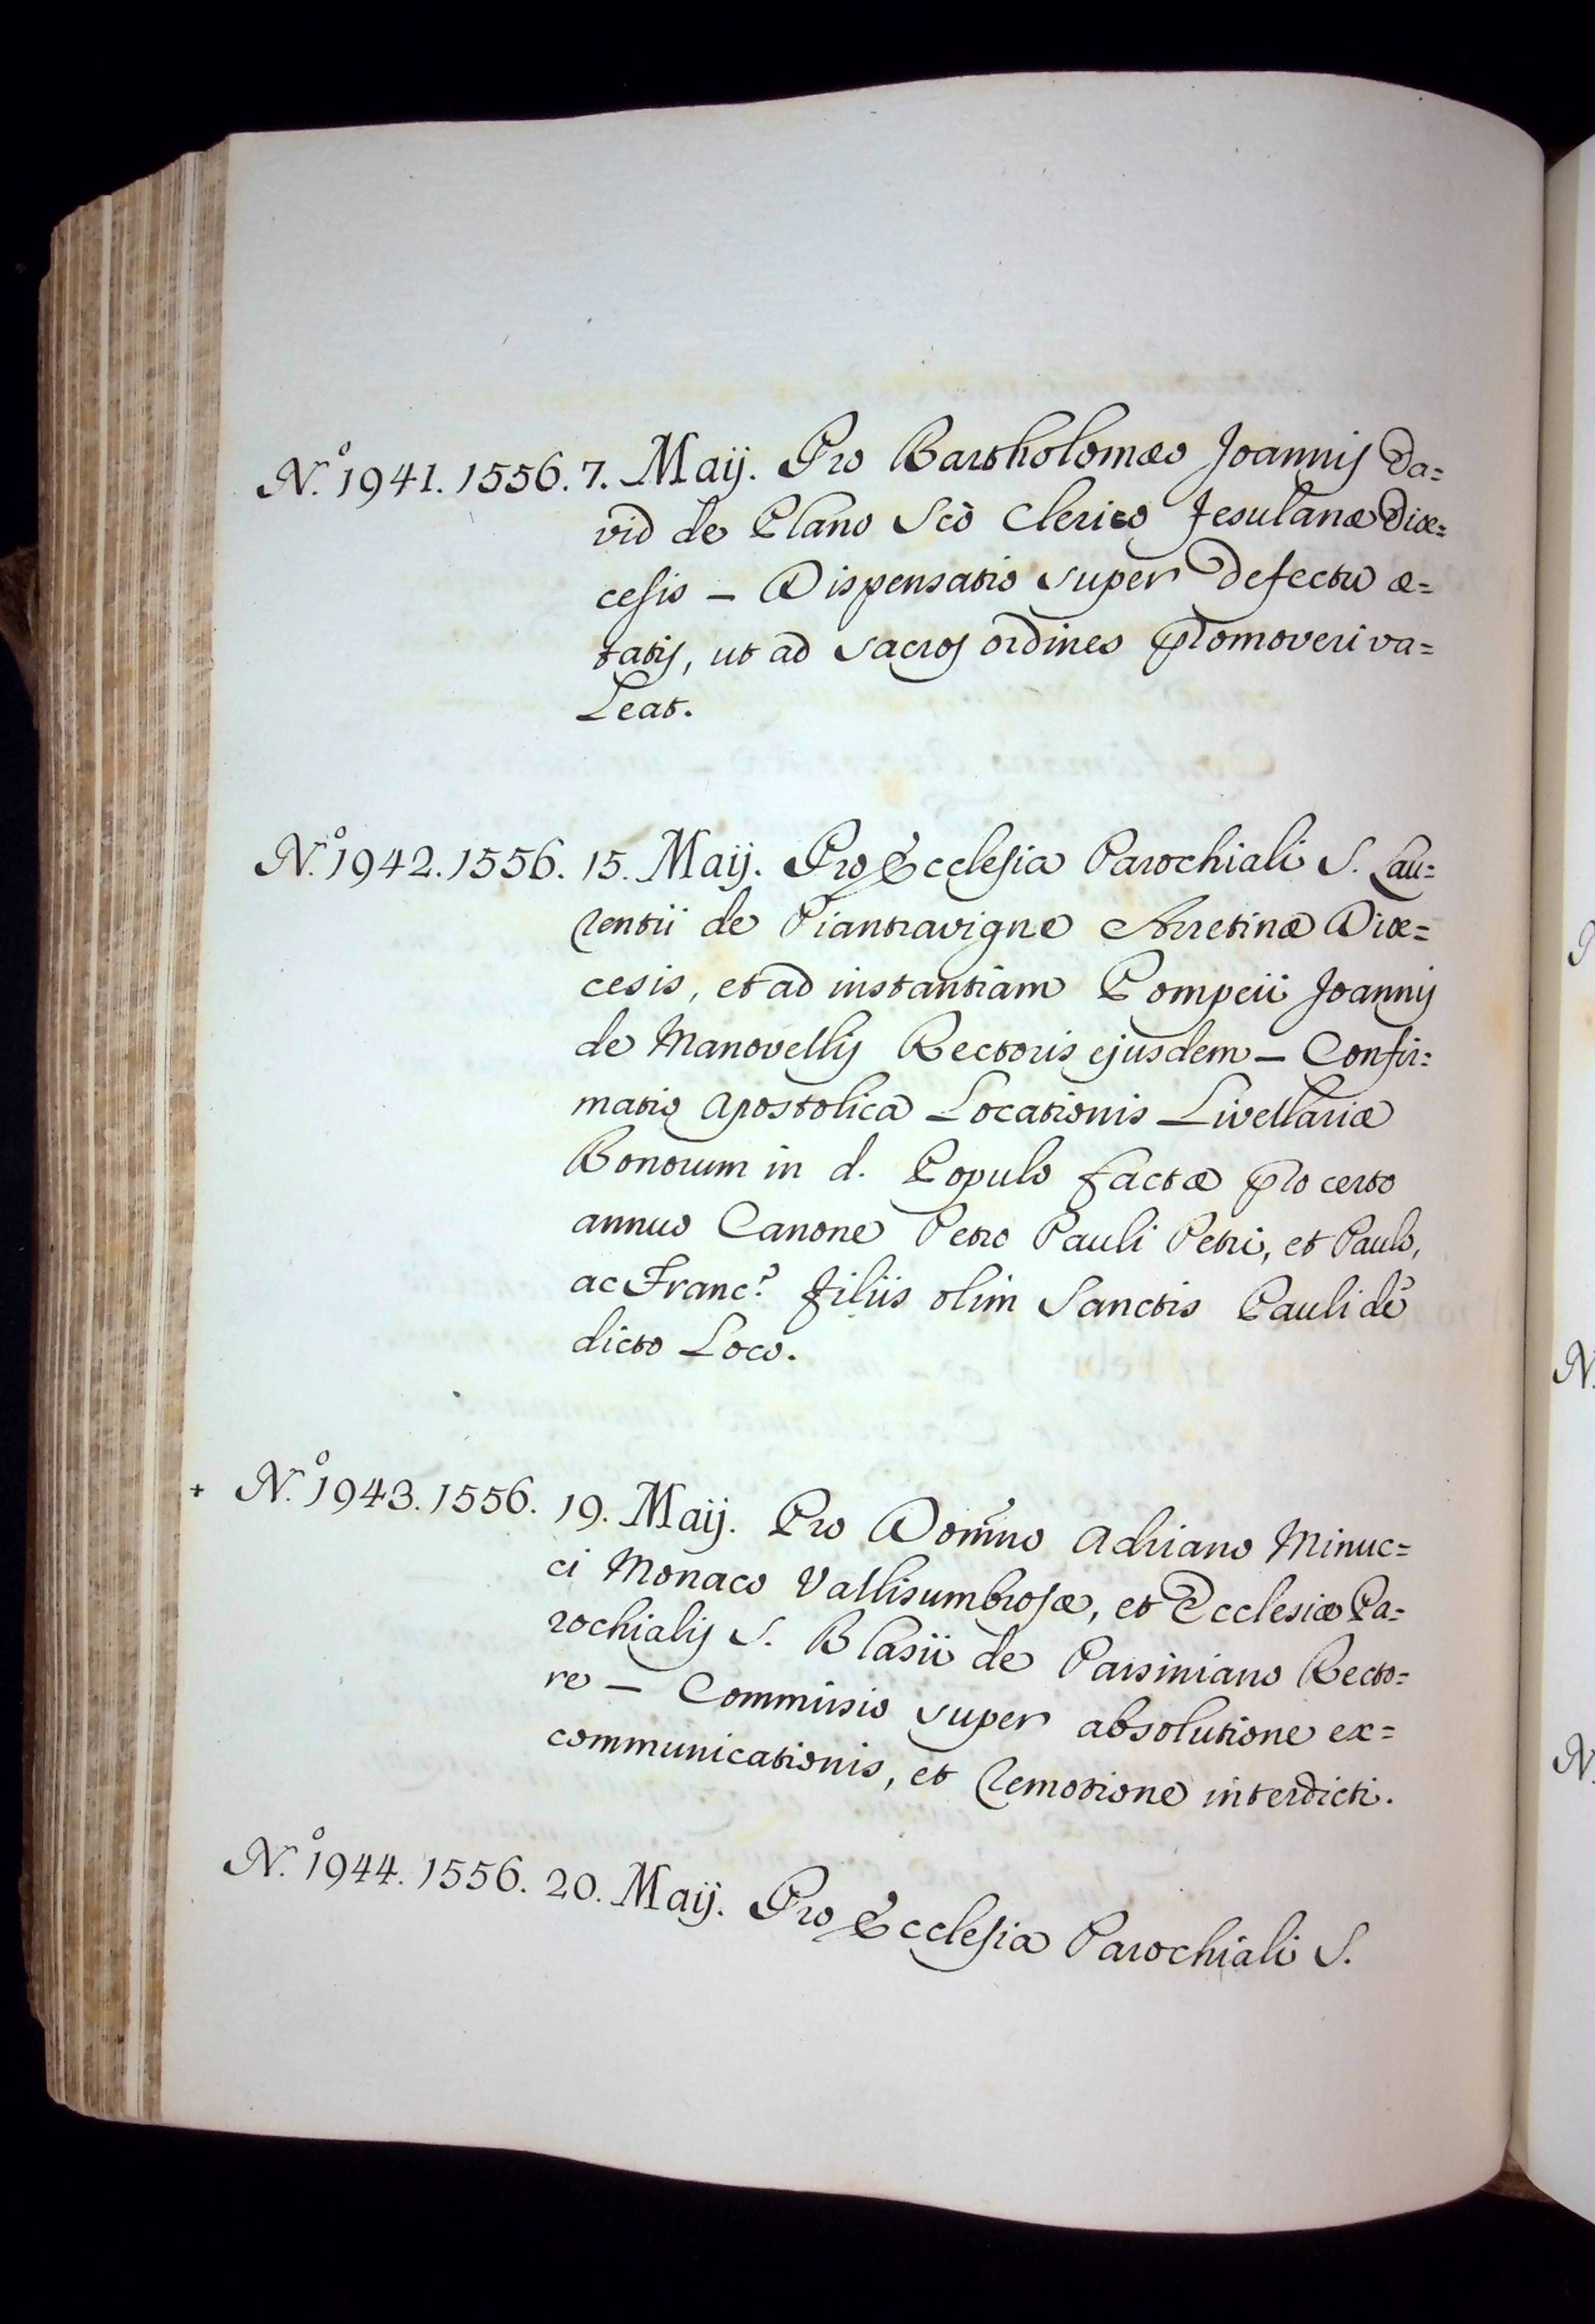 N.º 1941. 1556. 7. Maij. Pro Bartholomæo Joannis Da=
vid de Plano Scò Clerico Fesulanæ Diæ=
cesis – Dispensatio super defectu æ=
tatis, ut ad sacros ordines promoveri va=
leat.
N.º 1942. 1556. 15. Maij. Pro Ecclesia Parochiali S. Lau=
rentii de Piantravigne Arretinæ Diæ=
cesis, et ad instantiam Pompeii Joannis
de Manovellis Rectoris ejusdem – Confir=
matio Apostolica Locationis Livellariæ
Bonorum in d. Populo factæ pro certo
annuo Canone Petro Pauli Petri, et Paulo,
ac Franc.º filiis olim Sanctis Pauli de
dicto Loco.
+ N.º 1943. 1556. 19. Maij. Pro Domño Adriano Minuc=
ci Monaco Vallisumbrosæ, et Ecclesiæ Pa=
rochialis S. Blasii de Parsiniano Recto=
re – Commissio super absolutione ex=
communicationis, et remotione interdicti.
N.º 1944. 1556. 20. Maij. Pro Ecclesia Parochiali S.